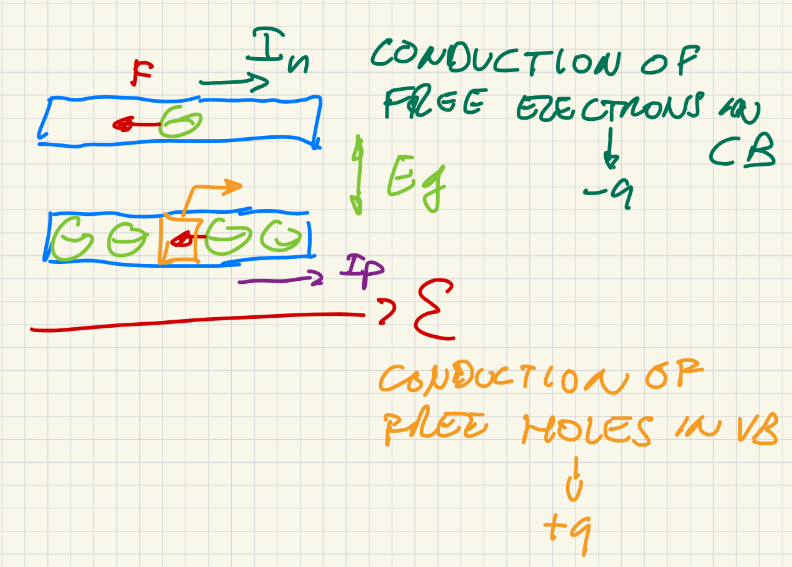 In
F
CONDUCTION OF
FREE ELECTRONS IN
CB
-q
Eg
Ip
ℰ
CONDUCTION OF
FREE HOLES IN VB
+q